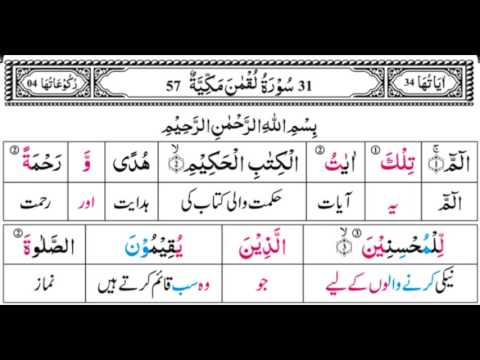 اٰیَاتُهَا 34 31 سُوْرَةُ لُقْمٰنَ مَکِّیَّةٌ 57 رُکُوْعَاتُهَا 04
بِسْمِ اللهِ الرَّحْمٰنِ الرَّحِیْمِ
الٓمّٓ ۚ﴿۱﴾ تِلْكَ ① اٰیٰتُ ② الْکِتٰبِ الْحَکِیْمِ ۙ﴿۲﴾ هُدًی وَّ رَحْمَةً ②
الٓمّٓ یہ آیات حکمت والی کتاب کی ہدایت اور رحمت
لِّلْمُحْسِنِیْنَ ③ ۙ﴿۳﴾ الَّذِیْنَ یُقِیْمُوْنَ الصَّلٰوةَ ②
نیکی کرنے والوں کے لیے جو وہ سب قائم کرتے ہیں نماز